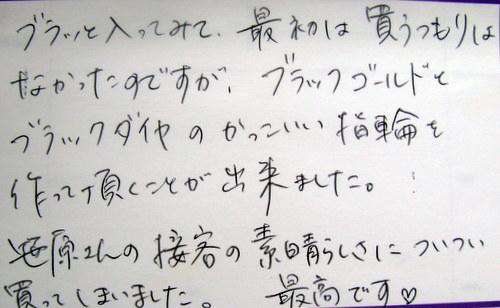 ブラッと入ってみて、最初は買うつもりは
なかったのですが、ブラックゴールドと
ブラックダイヤのかっこいい指輪を
作って頂くことが出来ました。
笹原さんの接客の素晴らしさについつい
買ってしまいました。 最高です♡